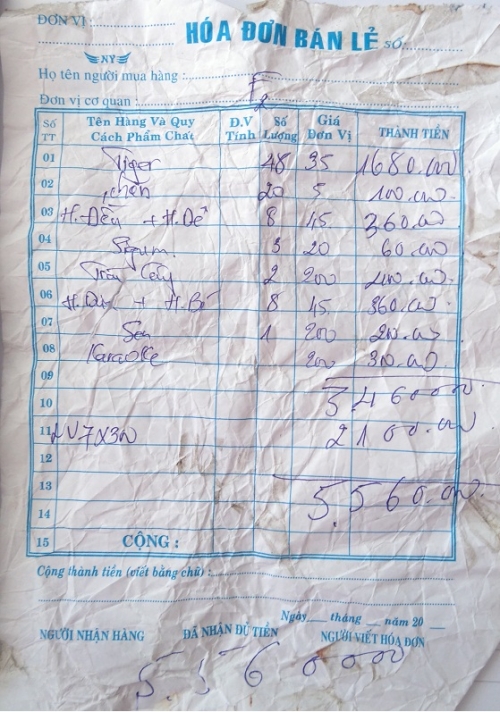 ĐƠN VỊ :
HÓA ĐƠN BÁN LẺ SỐ:
NY
Họ tên người mua hàng :
Đơn vị cơ quan :
Số TT Tên Hàng Và Quy Cách Phẩm Chất Đ.V Tính Số Lượng Giá Đơn Vị THÀNH TIỀN
01 Tiger 48 35 1680.000
02 20 5 100.000
03 8 45 360.000
04 3 20 60.000
05 2 200 400.000
06 8 45 360.000
07 1 200 200.000
08 Karaoke 300.000
09
10 3.460000
11 7x300 2100.000
12
13 5.560.000
14
15 CỘNG :
Cộng thành tiền (viết bằng chữ) :
Ngày tháng năm 20
NGƯỜI NHẬN HÀNG ĐÃ NHẬN ĐỦ TIỀN NGƯỜI VIẾT HÓA ĐƠN
5560000